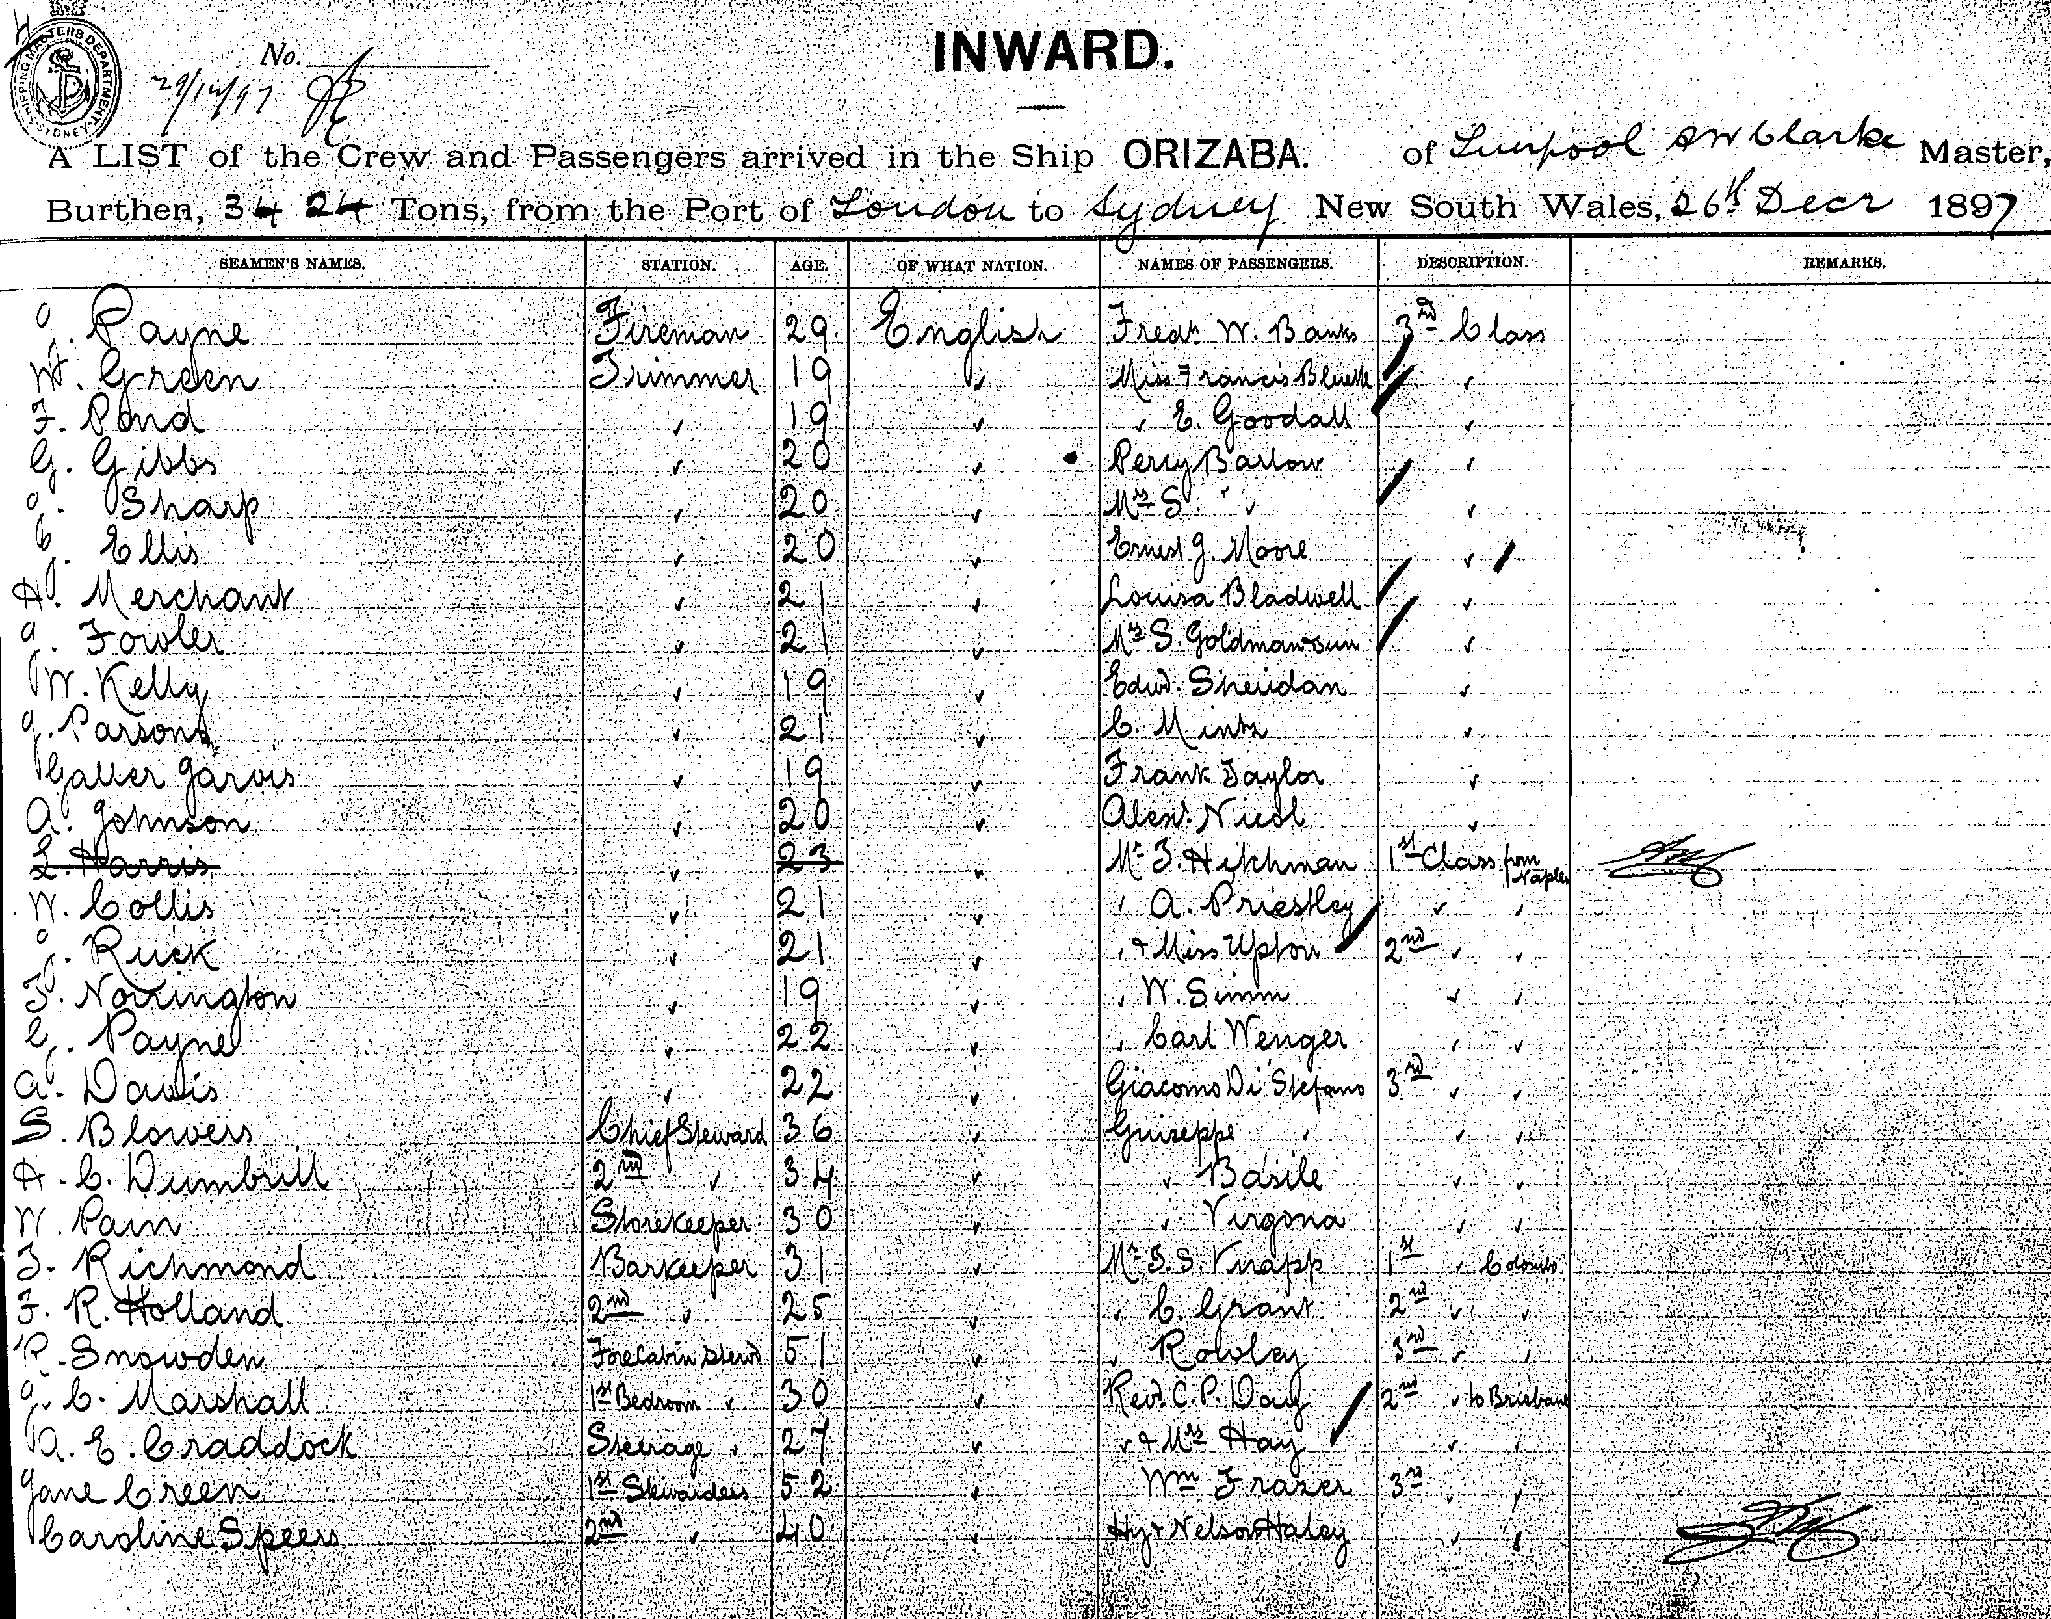 SHIPPING MASTERS DEPARTMENT SYDNEY
No.
29/12/97
INWARD.
A LIST of the Crew and Passengers arrived in the Ship ORIZABA. of Liverpool A W Clarke Master,
Burthen, 3424 Tons, from the Port of London to Sydney New South Wales, 26th Decr 1897
SEAMEN'S NAMES. STATION. AGE. OF WHAT NATION. NAMES OF PASSENGERS. DESCRIPTION. REMARKS.
J. Payne Fireman 29 English Fredk W. Banks 3rd Class
W. Green Trimmer 19 " Miss Francis "
F. Pond " 19 " " E. Goodall "
G. Gibbs " 20 " Percy Barlow "
J. Sharp " 20 " Mrs S " "
C. Ellis " 20 " Ernest J. Moore "
H. Merchant " 21 " Louisa Bladwell "
J. Fowler " 21 " "
W. Kelly " 19 " Edwd. Sheridan "
J. Parsons " 21 " C. Mintz "
Walter Jarvis " 19 " Frank Taylor "
A. Johnson " 20 " Alexr. Nicol "
L. Harris " 23 " Mr T. Hikhman 1st Class from Naples
W. Collis " 21 " " A. Priestley " "
J. Ruck " 21 " " + Miss Upton 2nd " "
T. Norrington " 19 " " W. Simm " "
C. Payne " 22 " " Carl Wenger " "
A. Davis " 22 " Giacomo Di Stefano 3rd " "
S. Blowers Chief Steward 36 " Guiseppe " " "
H. C. Dumbrill 2nd " 34 " " Basile " "
W. Pain Storekeeper 30 " " Virgona " "
T. Richmond Barkeeper 31 " Mr S. S. Knapp 1st " Colombo
F. R. Holland 2nd " 25 " " C. Grant 2nd " "
R. Snowden Forecabin Stewd 51 " " Rowley 3rd " "
J. C. Marshall 1st Bedroom " 30 " Revd. C. P. Day 2nd " to Brisbane
A. E. Craddock Steerage " 27 " " + Mrs Hay " "
Jane Creen 1st Stewardess 52 " Wm Frazer 3rd " "
Caroline Speers 2nd " 40 " Hy + Nelson Haley " "